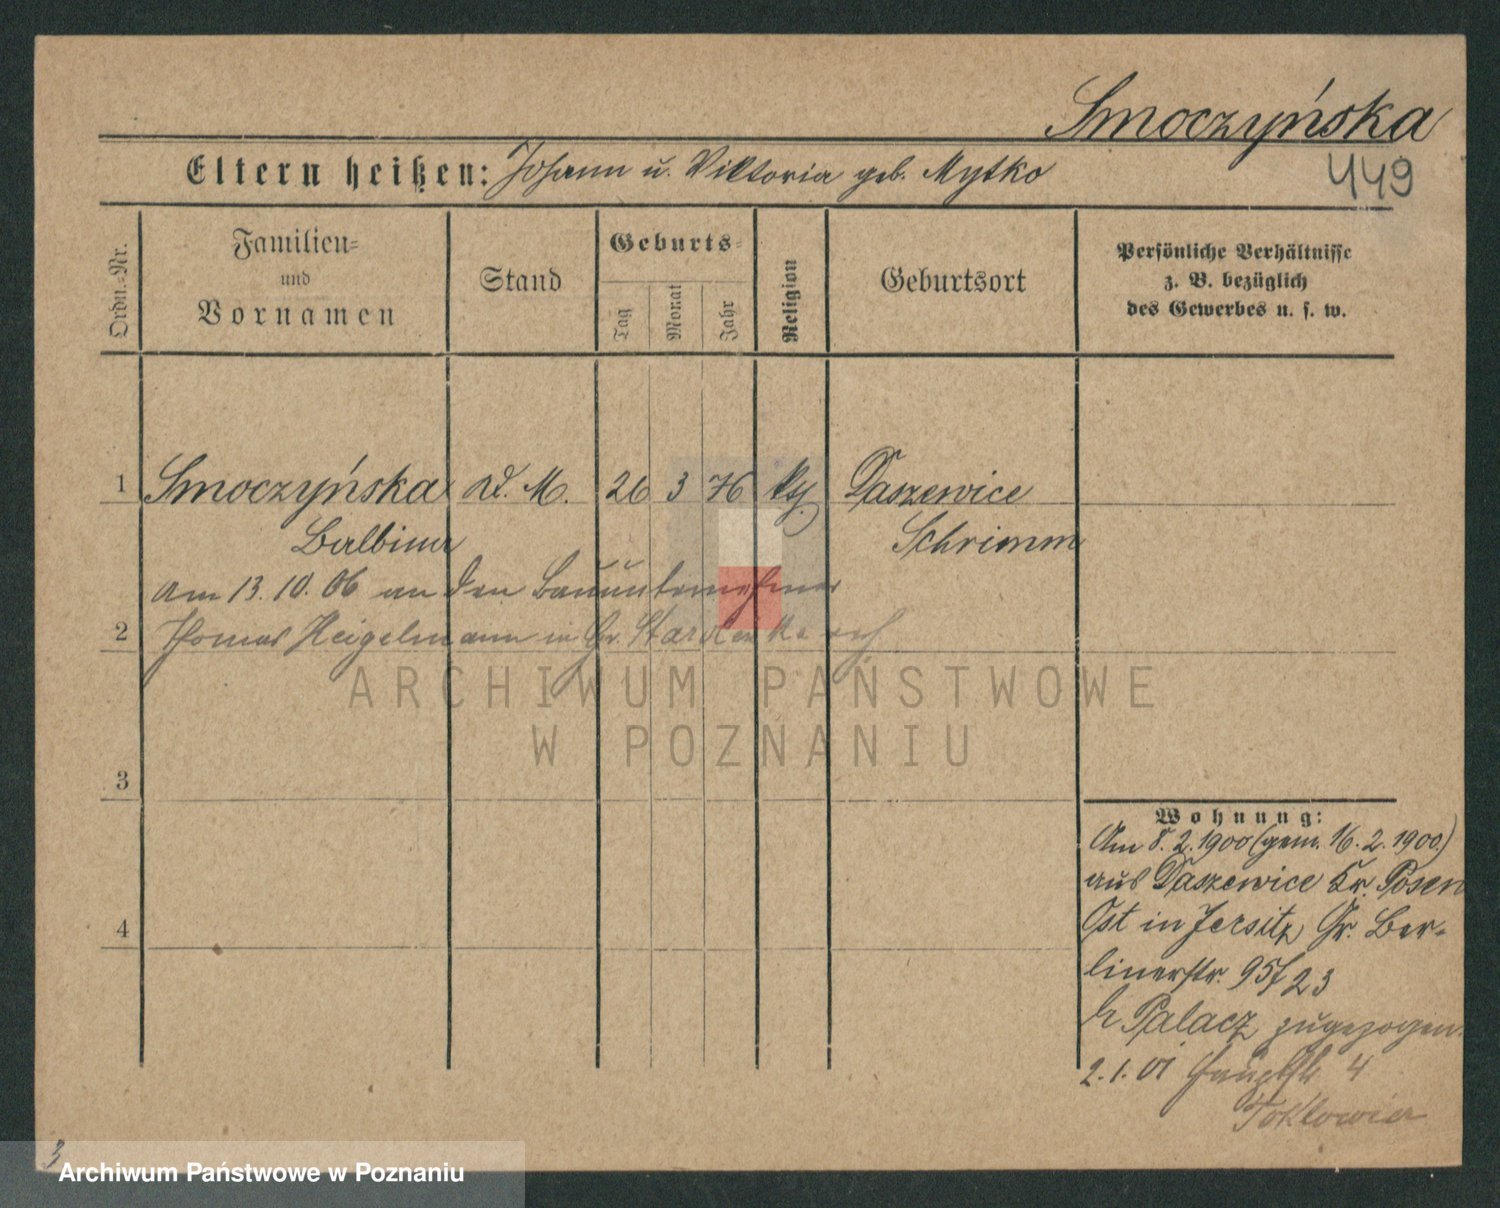 Smoczyńska
449
Eltern heißen: Johann u. Viktoria geb. Mytko
Ordn.=Nr.
Familien=
und
Vornamen
Stand
Geburts=
Tag
Monat
Jahr
Religion
Geburtsort
Persönliche Verhältnisse
z. B. bezüglich
des Gewerbes u. s. w.
1 Smoczyńska d. M. 26 3 76 kth. Daszewice
Balbina Schrimm
am 13. 10. 06 an den Bauunternehmer
2 Thomas Heigelmann in Gr. Starolenka verh
ARCHIWUM PAŃSTWOWE
W POZNANIU
3
4
Wohnung:
Am 8. 2. 1900 (gem. 16. 2. 1900.)
aus Daszewice Kr. Posen
Ost in Jersitz, Gr. Ber-
linerstr. 95/23
b Palacz zugezogen.
2. 1. 01 4
3
Archiwum Państwowe w Poznaniu